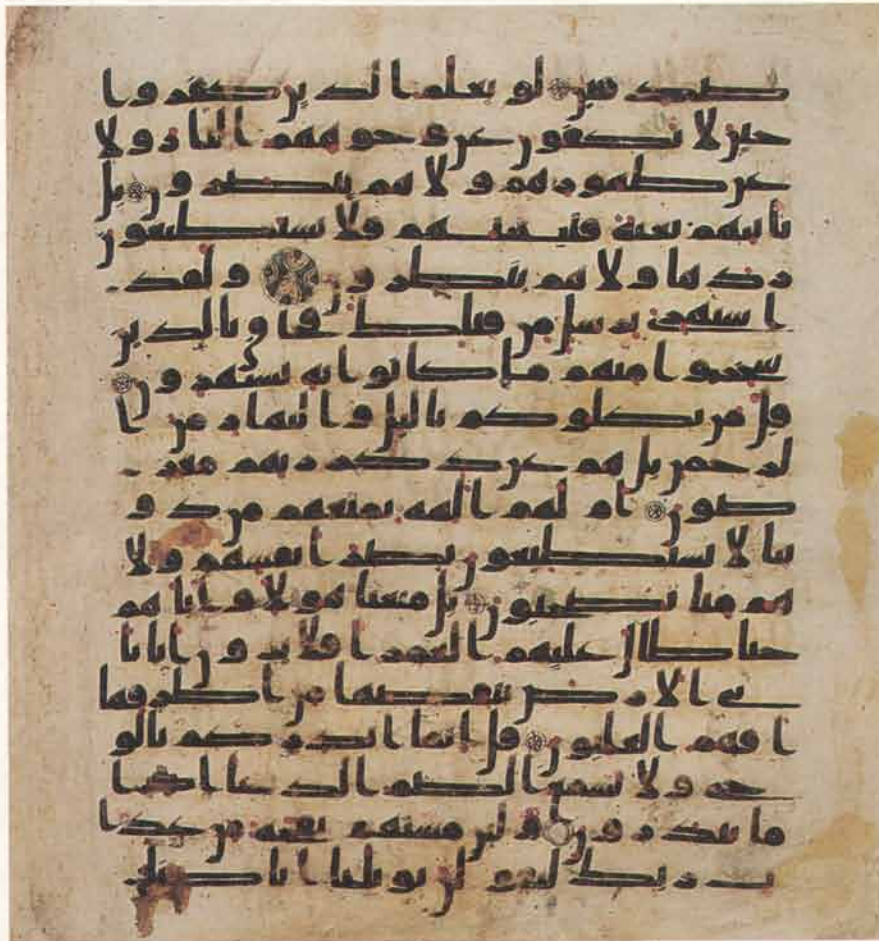 صدقين لو يعلم الذين كفروا
حين لا يكفون عن وجوههم النار ولا
عن ظهورهم ولا هم ينصرون بل
تاتيهم بغتة فتبهتهم فلا يستطيعون
ردها ولا هم ينظرون ولقد
استهزئ برسل من قبلك فحاق بالذين
سخروا منهم ما كانوا به يستهزون
قل من يكلوكم باليل والنهار من ا
لرحمن بل هم عن ذكر ربهم معر
ضون ام لهم الهه تمنعهم من دو
ننا لا يستطيعون نصر انفسهم ولا
هم منا يصحبون بل متعنا هولا واباهم
حتا طال عليهم العمر افلا يرون انا نا
تي الارض ننقصها من اطرفها
افهم الغلبون قل انما انذركم بالو
حي ولا يسمع الصم الدعا اذا
ما ينذرون ولين مستهم نفحه من عذا
ب ربك ليقولن يويلنا انا كنا